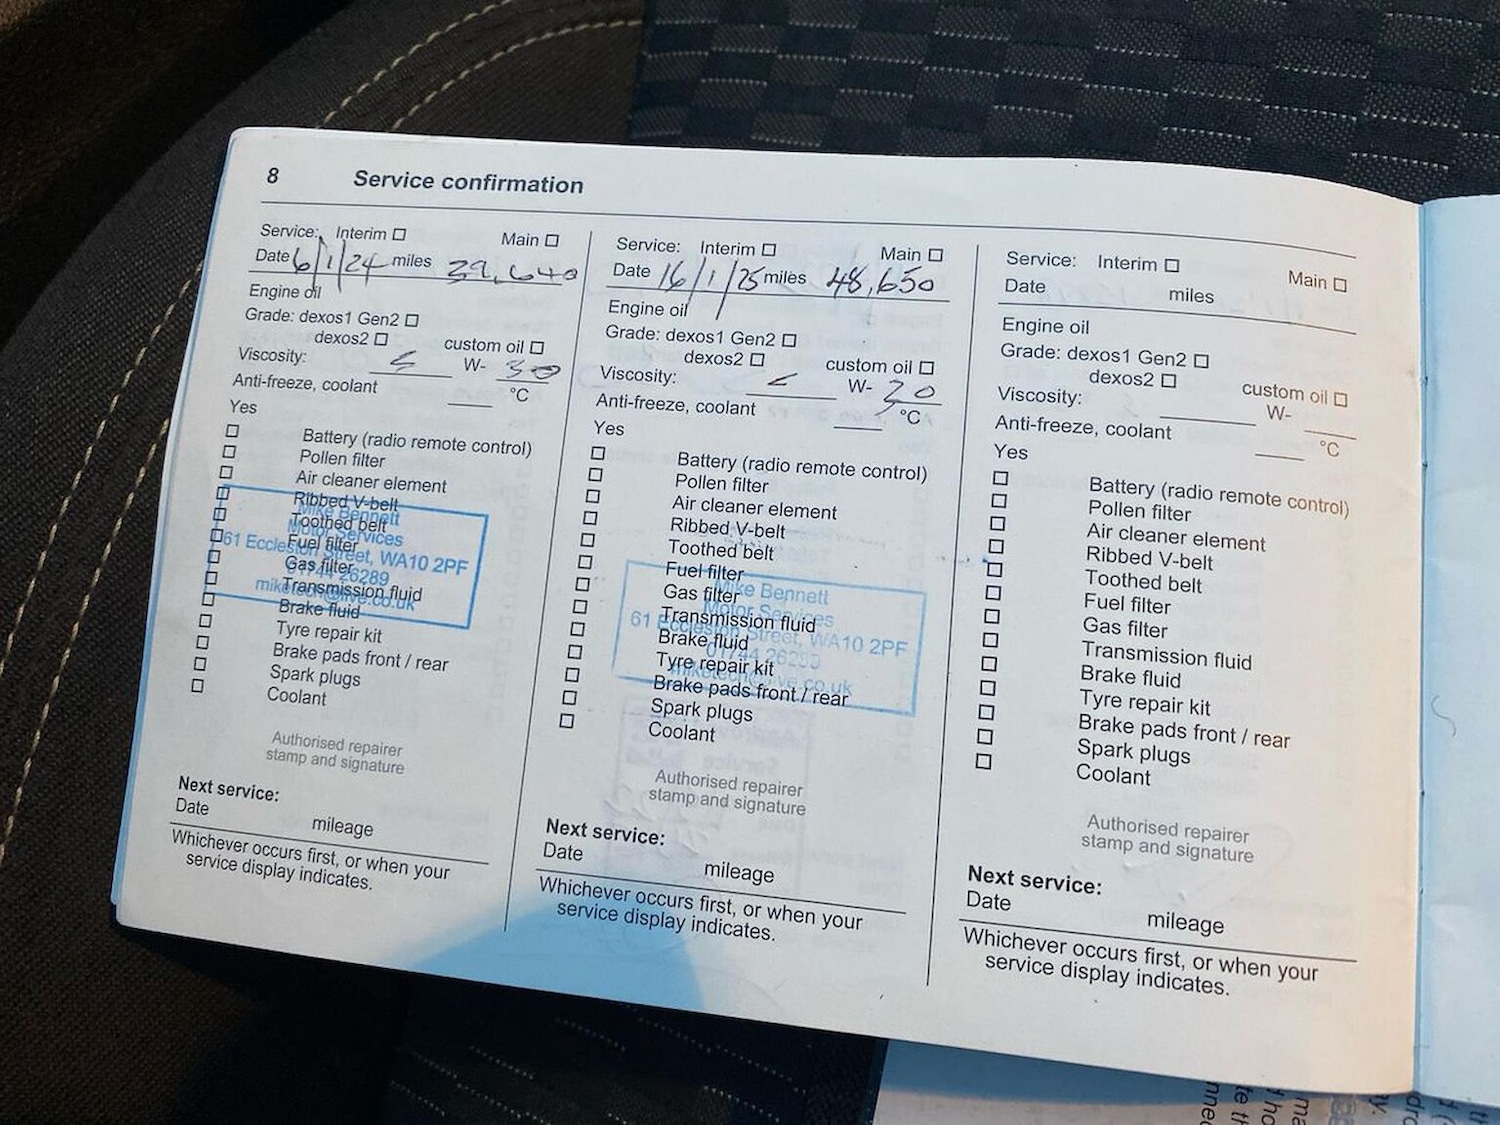 8 Service confirmation
Service: Interim Main
Date 6/1/24 miles 39,640
Engine oil
Grade: dexos1 Gen2
dexos2 custom oil
Viscosity: W- 30
Anti-freeze, coolant °C
Yes
Battery (radio remote control)
Pollen filter
Air cleaner element
Ribbed V-belt
Toothed belt
Fuel filter
Gas filter
Transmission fluid
Brake fluid
Tyre repair kit
Brake pads front / rear
Spark plugs
Coolant
Mike Bennett
Motor Services
61 Eccleston Street, WA10 2PF
01744 26289
miketech@live.co.uk
Authorised repairer
stamp and signature
Next service:
Date mileage
Whichever occurs first, or when your
service display indicates.
Service: Interim Main
Date 16/1/25 miles 48,650
Engine oil
Grade: dexos1 Gen2
dexos2 custom oil
Viscosity: W- 20
Anti-freeze, coolant °C
Yes
Battery (radio remote control)
Pollen filter
Air cleaner element
Ribbed V-belt
Toothed belt
Fuel filter
Gas filter
Transmission fluid
Brake fluid
Tyre repair kit
Brake pads front / rear
Spark plugs
Coolant
Mike Bennett
Motor Services
61 Eccleston Street, WA10 2PF
01744 26289
miketech@live.co.uk
Authorised repairer
stamp and signature
Next service:
Date mileage
Whichever occurs first, or when your
service display indicates.
Service: Interim Main
Date miles
Engine oil
Grade: dexos1 Gen2
dexos2 custom oil
Viscosity: W-
Anti-freeze, coolant °C
Yes
Battery (radio remote control)
Pollen filter
Air cleaner element
Ribbed V-belt
Toothed belt
Fuel filter
Gas filter
Transmission fluid
Brake fluid
Tyre repair kit
Brake pads front / rear
Spark plugs
Coolant
Authorised repairer
stamp and signature
Next service:
Date mileage
Whichever occurs first, or when your
service display indicates.